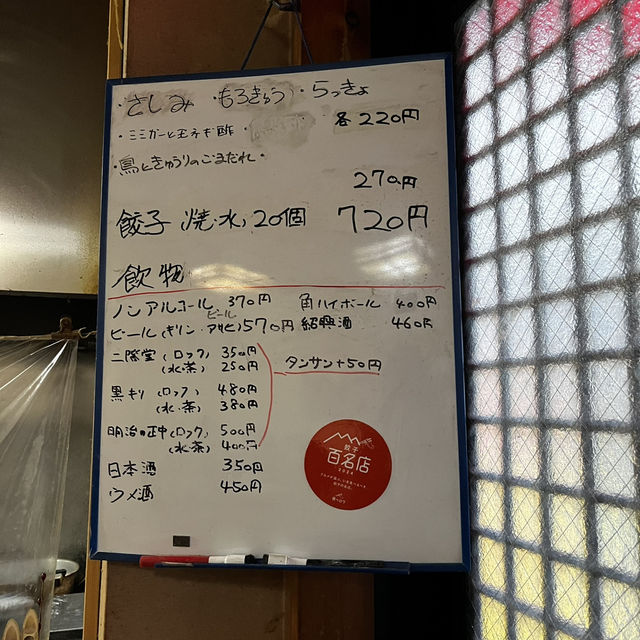 ・さしみ ・もろきゅう ・らっきょ
・ミミガーと玉ネギ酢・
各220円
・鳥ときゅうりのごまだれ・
270円
餃子(焼・水)20個 720円
飲物
ノンアルコールビール 370円
ビール(キリン・アサヒ)570円
二階堂(ロック) 350円
(水・茶) 250円
黒キリ(ロック) 480円
(水・茶) 380円
明治の正中(ロック) 500円
(水・茶) 400円
日本酒 350円
ウメ酒 450円
角ハイボール 400円
紹興酒 460円
タンサン+50円
餃子
百名店
2024
食べログ